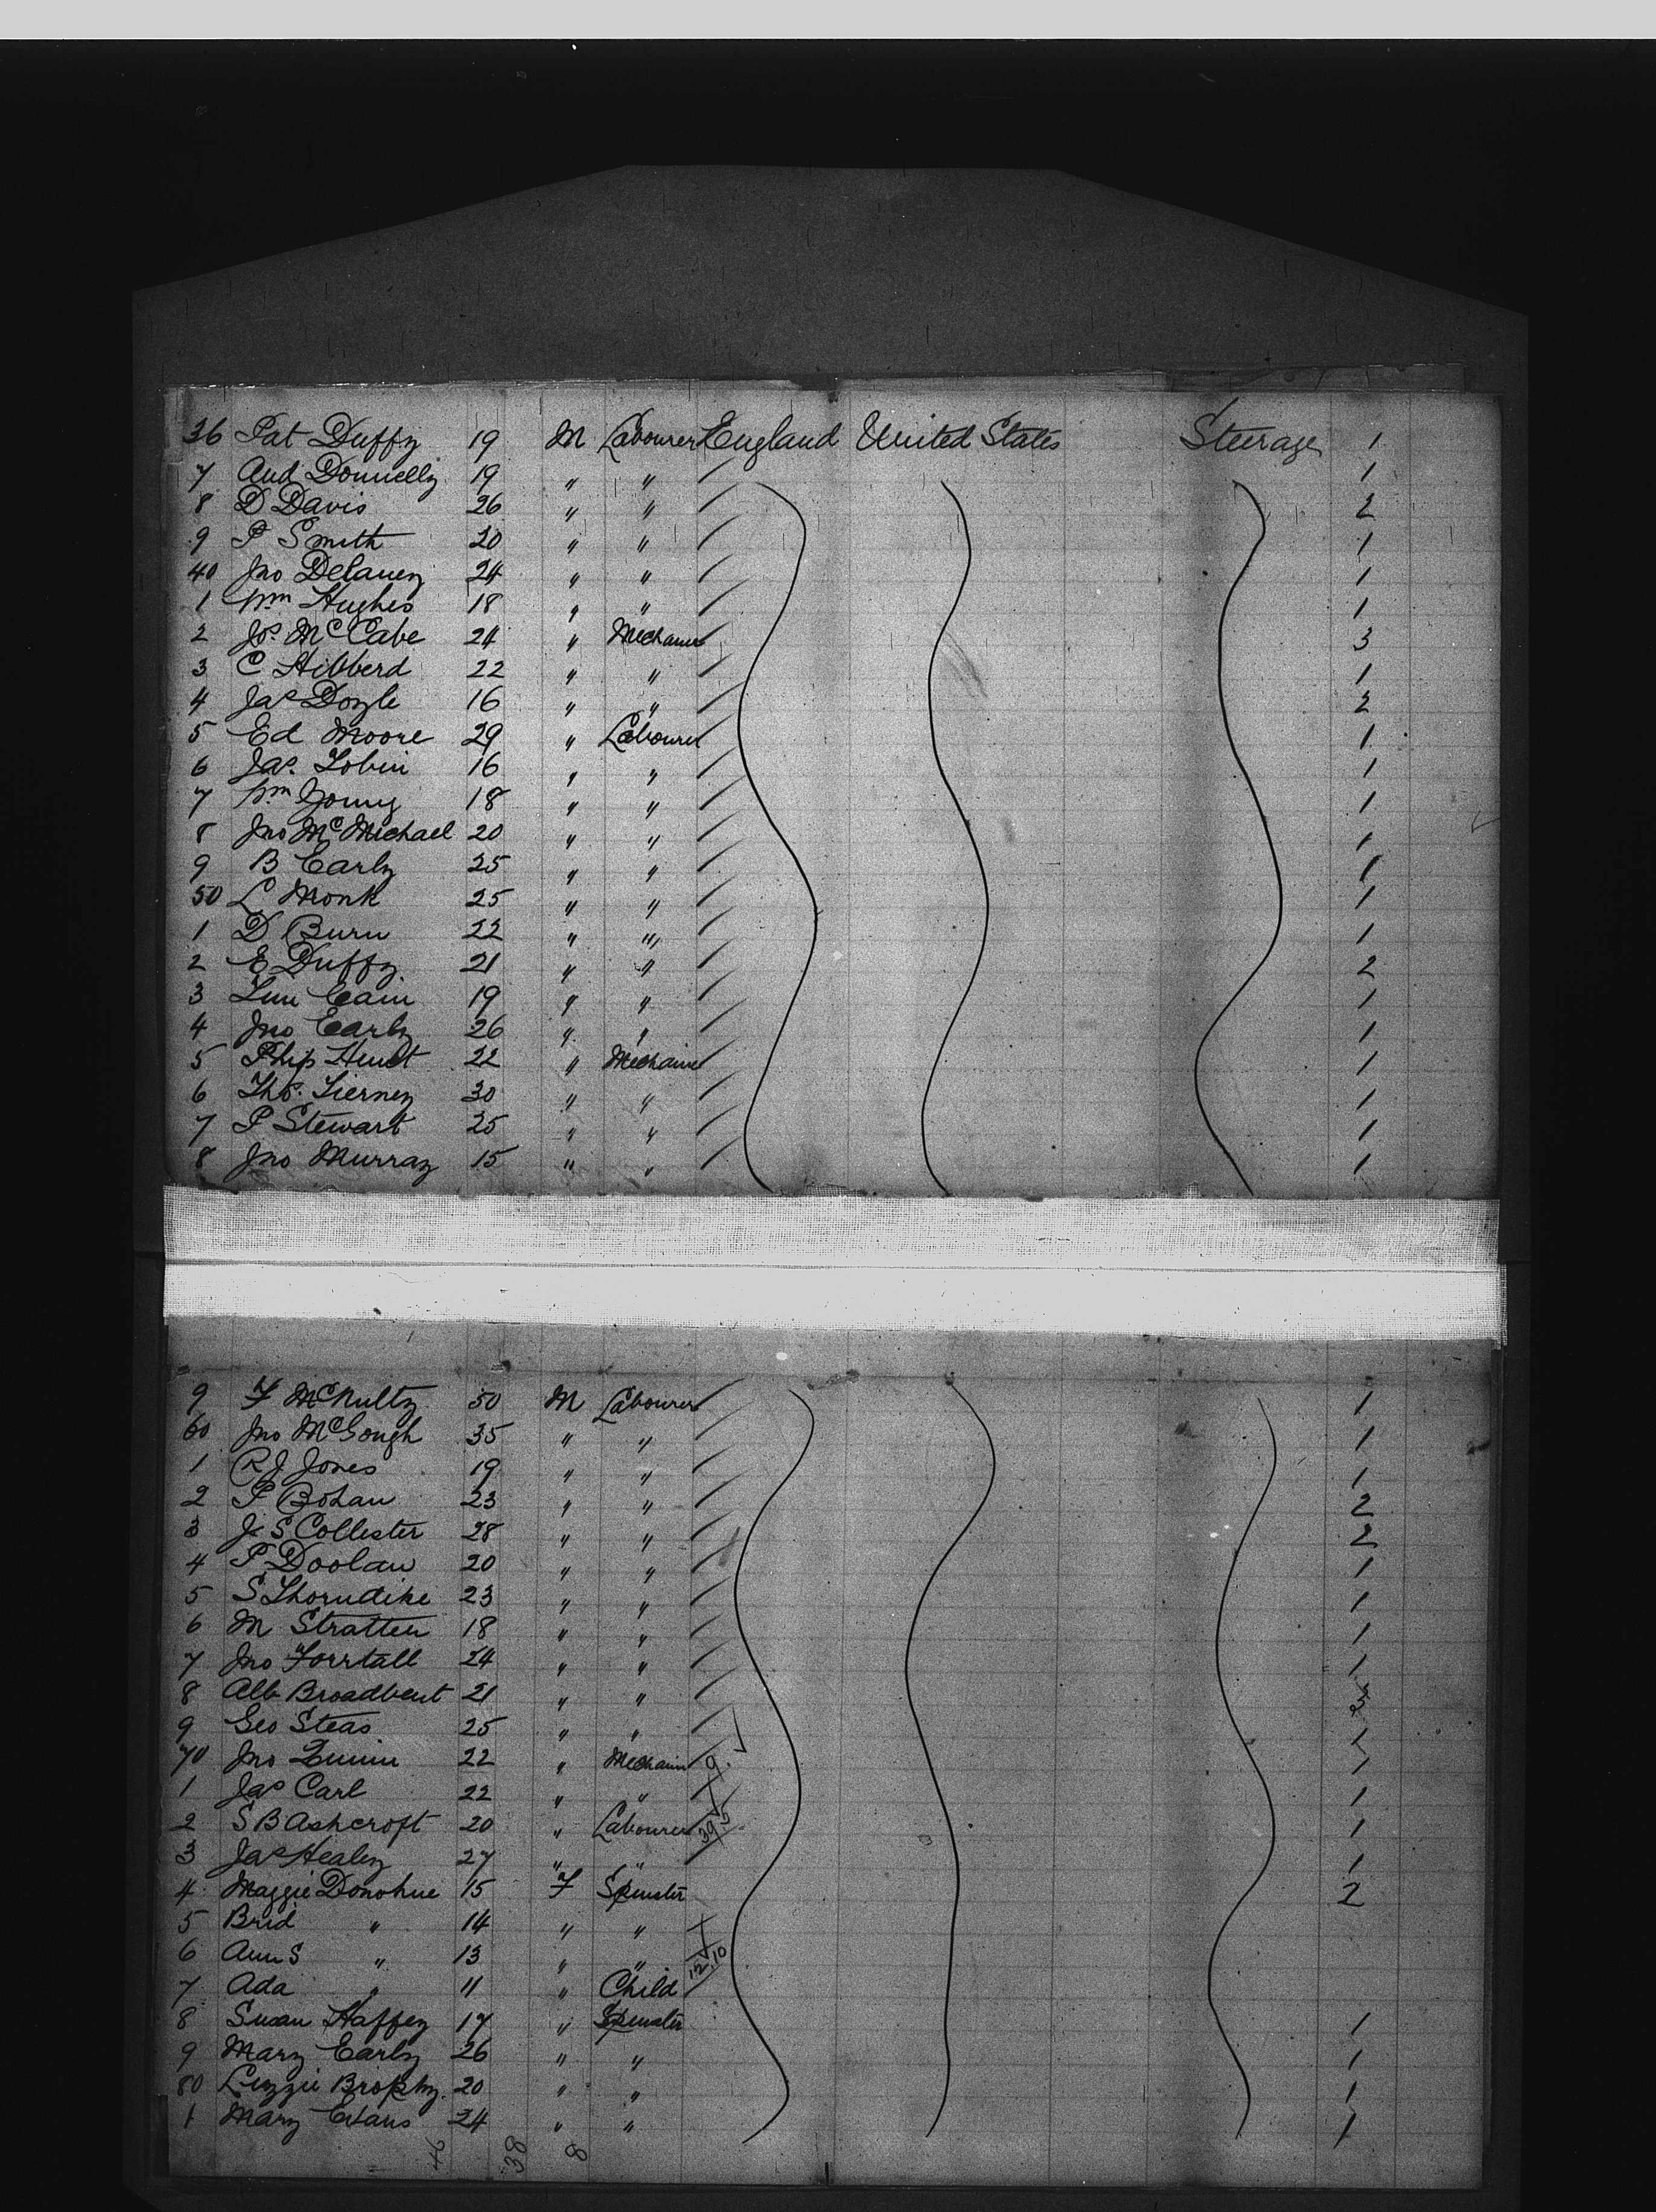 36 Pat Duffy 19 M Labourer England United States Steerage 1
7 And Donnelly 19 " " 1
8 D Davis 26 " " 2
9 P Smith 20 " " 1
40 Jno Delaney 24 " " 1
1 Wm Hughes 18 " " 1
2 Jos. McCabe 24 " Mechanic 3
3 C Hibberd 22 " " 1
4 Jas Doyle 16 " " 2
5 Ed Moore 29 " Labourer 1
6 Jas. Tobin 16 " " 1
7 Wm Young 18 " " 1
8 Jno McMichael 20 " " 1
9 B Early 25 " " 1
50 L Monk 25 " " 1
1 D Burn 22 " " 1
2 E Duffy 21 " " 2
3 Cain 19 " " 1
4 Jno Early 26 " " 1
5 Phip 22 " Mechanic 1
6 Thos. Tierney 30 " " 1
7 P Stewart 25 " " 1
8 Jno Murray 15 " " 1
9 F McNulty 50 M Labourer 1
60 Jno McGough 35 " " 1
1 R J Jones 19 " " 1
2 P Bohan 23 " " 2
3 J S Collester 28 " " 2
4 P Doolan 20 " " 1
5 S Thorndike 23 " " 1
6 M Stratten 18 " " 1
7 Jno Forrtall 24 " " 1
8 Alb Broadbent 21 " " 3
9 Geo Steas 25 " " 1
70 Jno Quinn 22 " Mechanic 9 1
1 Jas Carl 22 " " 1
2 S B Ashcroft 20 " Labourer 39 5 1
3 Jas Healey 27 " " 1
4 Maggie Donohue 15 F Spinster 2
5 Brid " 14 " "
6 Ann S " 13 " " 12 10
7 Ada " 11 " Child
8 Susan Haffey 17 " Spinster 1
9 Mary Early 26 " " 1
80 Lizzie Brophy. 20 " " 1
1 Mary Evans 24 " " 1
46 38 8